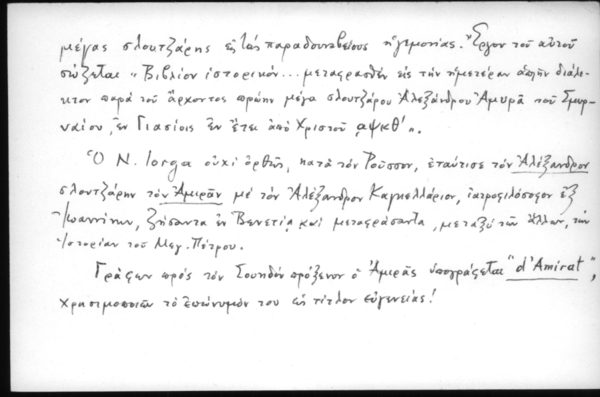 μέγας σλουτζάρης εἰς τὰς παραδουναβείους ἡγεμονίας. Ἔργον τοῦ αὐτοῦ
σώζεται „ Βιβλίον ἱστορικόν... μεταφρασθὲν εἰς τὴν ἡμετέραν ἁπλῆν διάλε-
κτον παρὰ τοῦ ἄρχοντος πρώην μέγα σλουτζάρου Ἀλεξάνδρου Ἀμυρᾶ τοῦ Σμυρ-
ναίου, ἐν Γιασίοις ἐν ἔτει ἀπὸ Χριστοῦ αψκθ' ".
Ὁ N. Iorga οὐχὶ ὀρθῶς, κατὰ τὸν Ροῦσσον, ἐταύτισε τὸν Ἀλέξανδρον
σλουτζάρην τὸν Ἀμιρᾶν μὲ τὸν Ἀλέξανδρον Καγκελλάριον, ἰατροφιλόσοφον ἐξ
Ἰωαννίνων, ζήσαντα ἐν Βενετίᾳ καὶ μεταφράσαντα, μεταξὺ τῶν ἄλλων, τὴν
Ἱστορίαν τοῦ Μεγ. Πέτρου.
Γράφων πρὸς τὸν Σουηδὸν πρόξενον ὁ Ἀμιρᾶς ὑπογράφεται "d'Amirat",
χρησιμοποιῶν τὸ ἐπώνυμόν του ὡς τίτλον εὐγενείας!